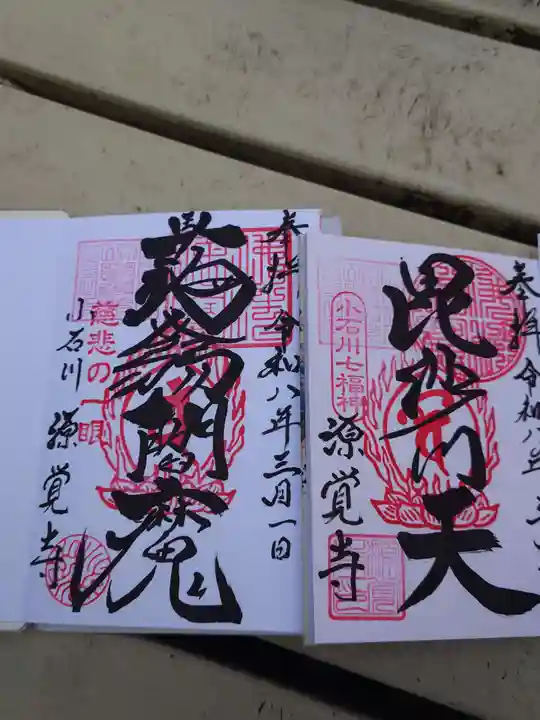 奉拝 令和八年三月一日
蒟蒻閻魔
慈悲の一眼
小石川 源覚寺
参拝 令和八年 三
毘沙門天
小石川七福神
源覚寺